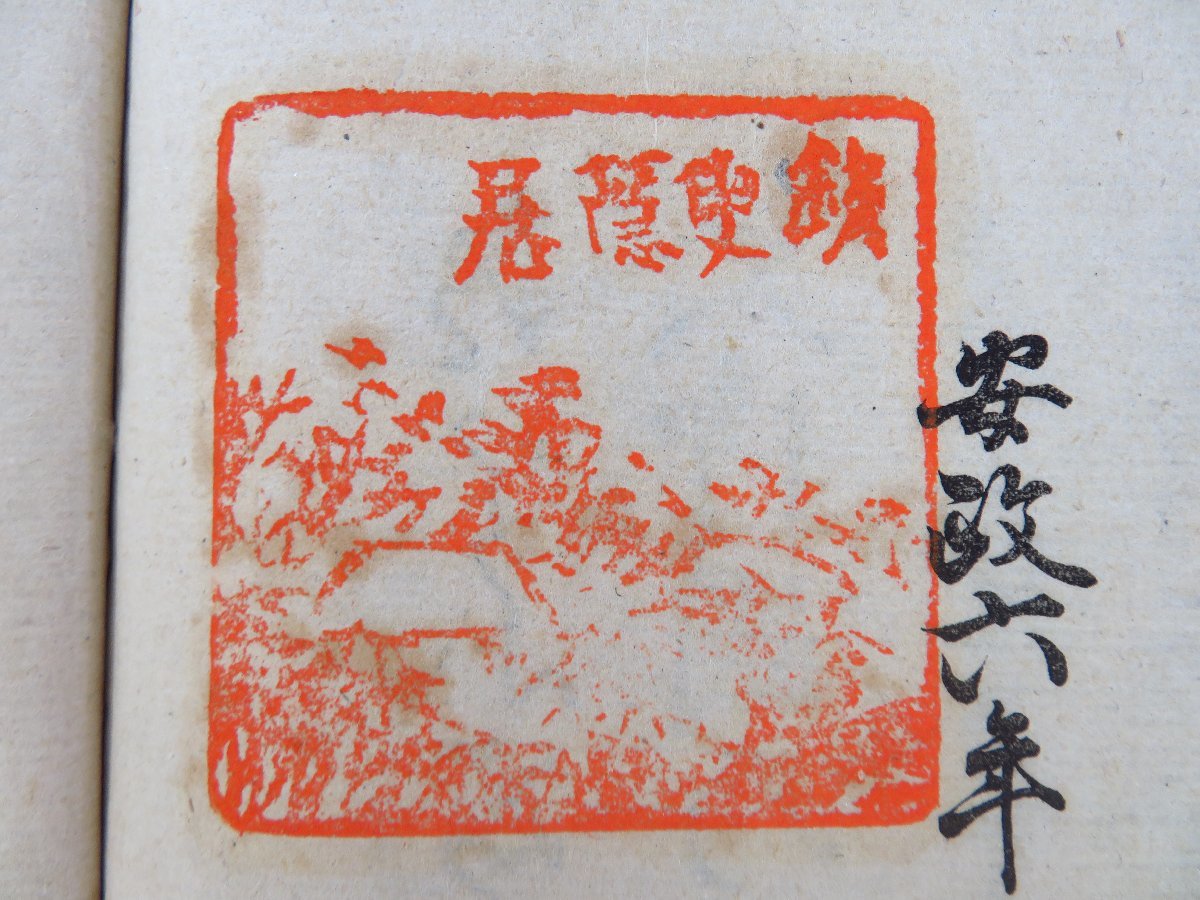 安政六年
鐵叟隱居